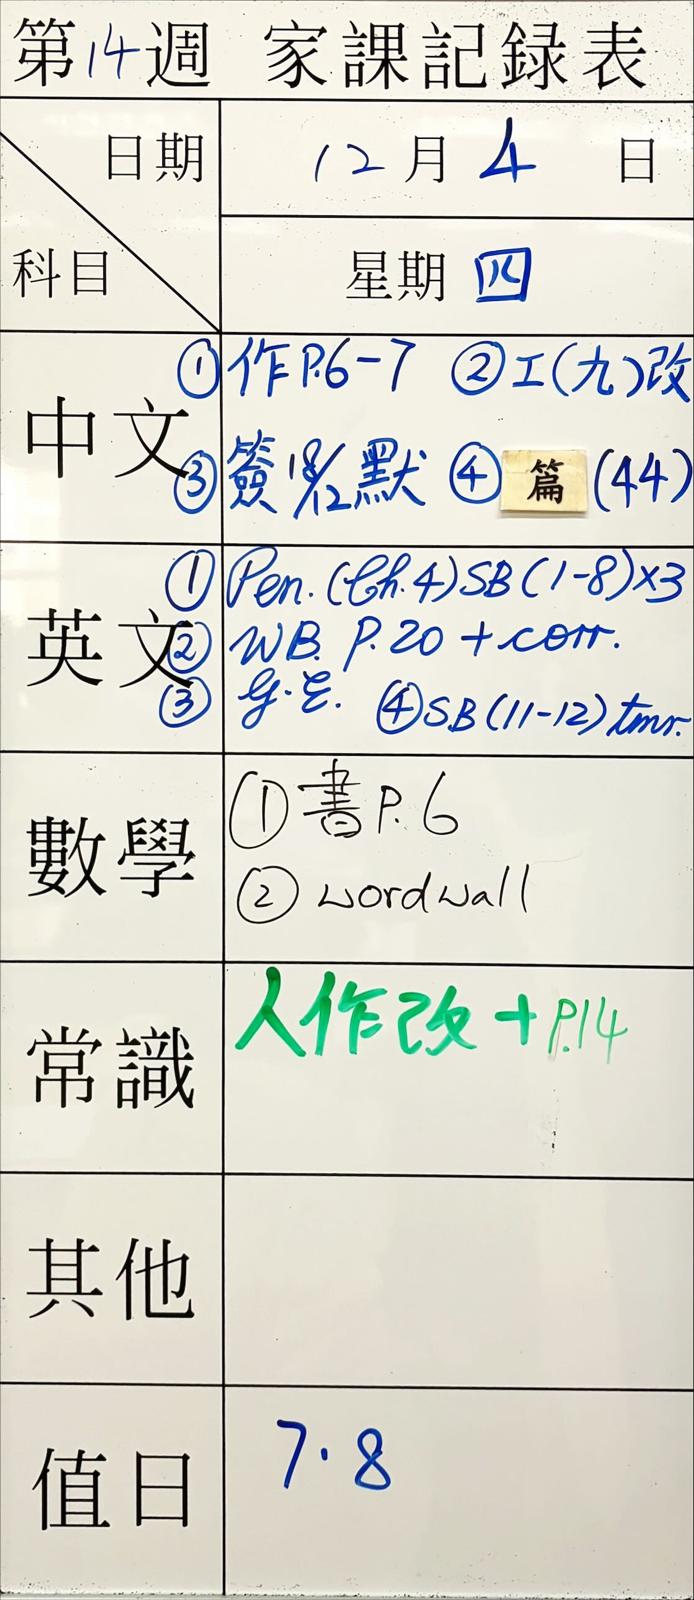 第14週 家課記録表
日期 12月4日
科目 星期四
中文 ①作P.6-7 ②工(九)改
③簽18/12默 ④篇(44)
英文 ①Pen.(Ch.4)SB(1-8)×3
②WB. P.20 + corr.
③G.E. ④SB(11-12)tmr.
數學 ①書P.6
②wordwall
常識 人作改+P.14
其他
值日 7.8